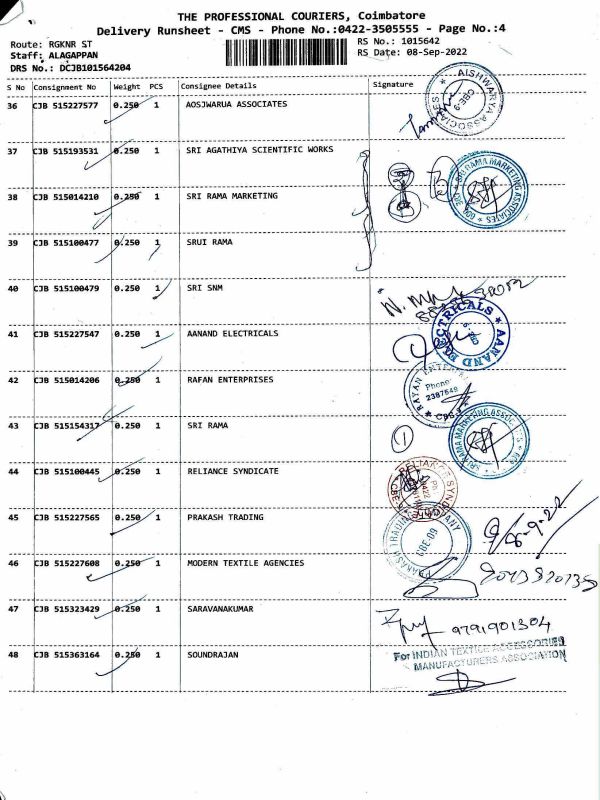 THE PROFESSIONAL COURIERS, Coimbatore
Delivery Runsheet - CMS - Phone No.:0422-3505555 - Page No.:4
Route: RGKNR ST
RS No.: 1015642
Staff: ALAGAPPAN
RS Date: 08-Sep-2022
DRS No.: DCJB101564204
S No Consignment No Weight PCS Consignee Details Signature
36 CJB 515227577 0.250 1 AOSJWARUA ASSOCIATES
AISHWARYA ASSOCIATES
CBE-9
37 CJB 515193531 0.250 1 SRI AGATHIYA SCIENTIFIC WORKS
38 CJB 515014210 0.250 1 SRI RAMA MARKETING
RAMA MARKETING ASSOCIATES
39 CJB 515100477 0.250 1 SRUI RAMA
40 CJB 515100479 0.250 1 SRI SNM
41 CJB 515227547 0.250 1 AANAND ELECTRICALS
AANAND ELECTRICALS
42 CJB 515014206 0.250 1 RAFAN ENTERPRISES
RAYAN
Phone:
2387649
43 CJB 515154317 0.250 1 SRI RAMA
1
SRI RAMA MARKETING ASSOC
44 CJB 515100445 0.250 1 RELIANCE SYNDICATE
RELIANCE SYNDICATE
45 CJB 515227565 0.250 1 PRAKASH TRADING
PRAKASH TRADING COMPANY
CBE-09
46 CJB 515227608 0.250 1 MODERN TEXTILE AGENCIES
47 CJB 515323429 0.250 1 SARAVANAKUMAR
9791901304
48 CJB 515363164 0.250 1 SOUNDRAJAN
For INDIAN TEXTILE ACCESSORIES
MANUFACTURERS ASSOCIATION